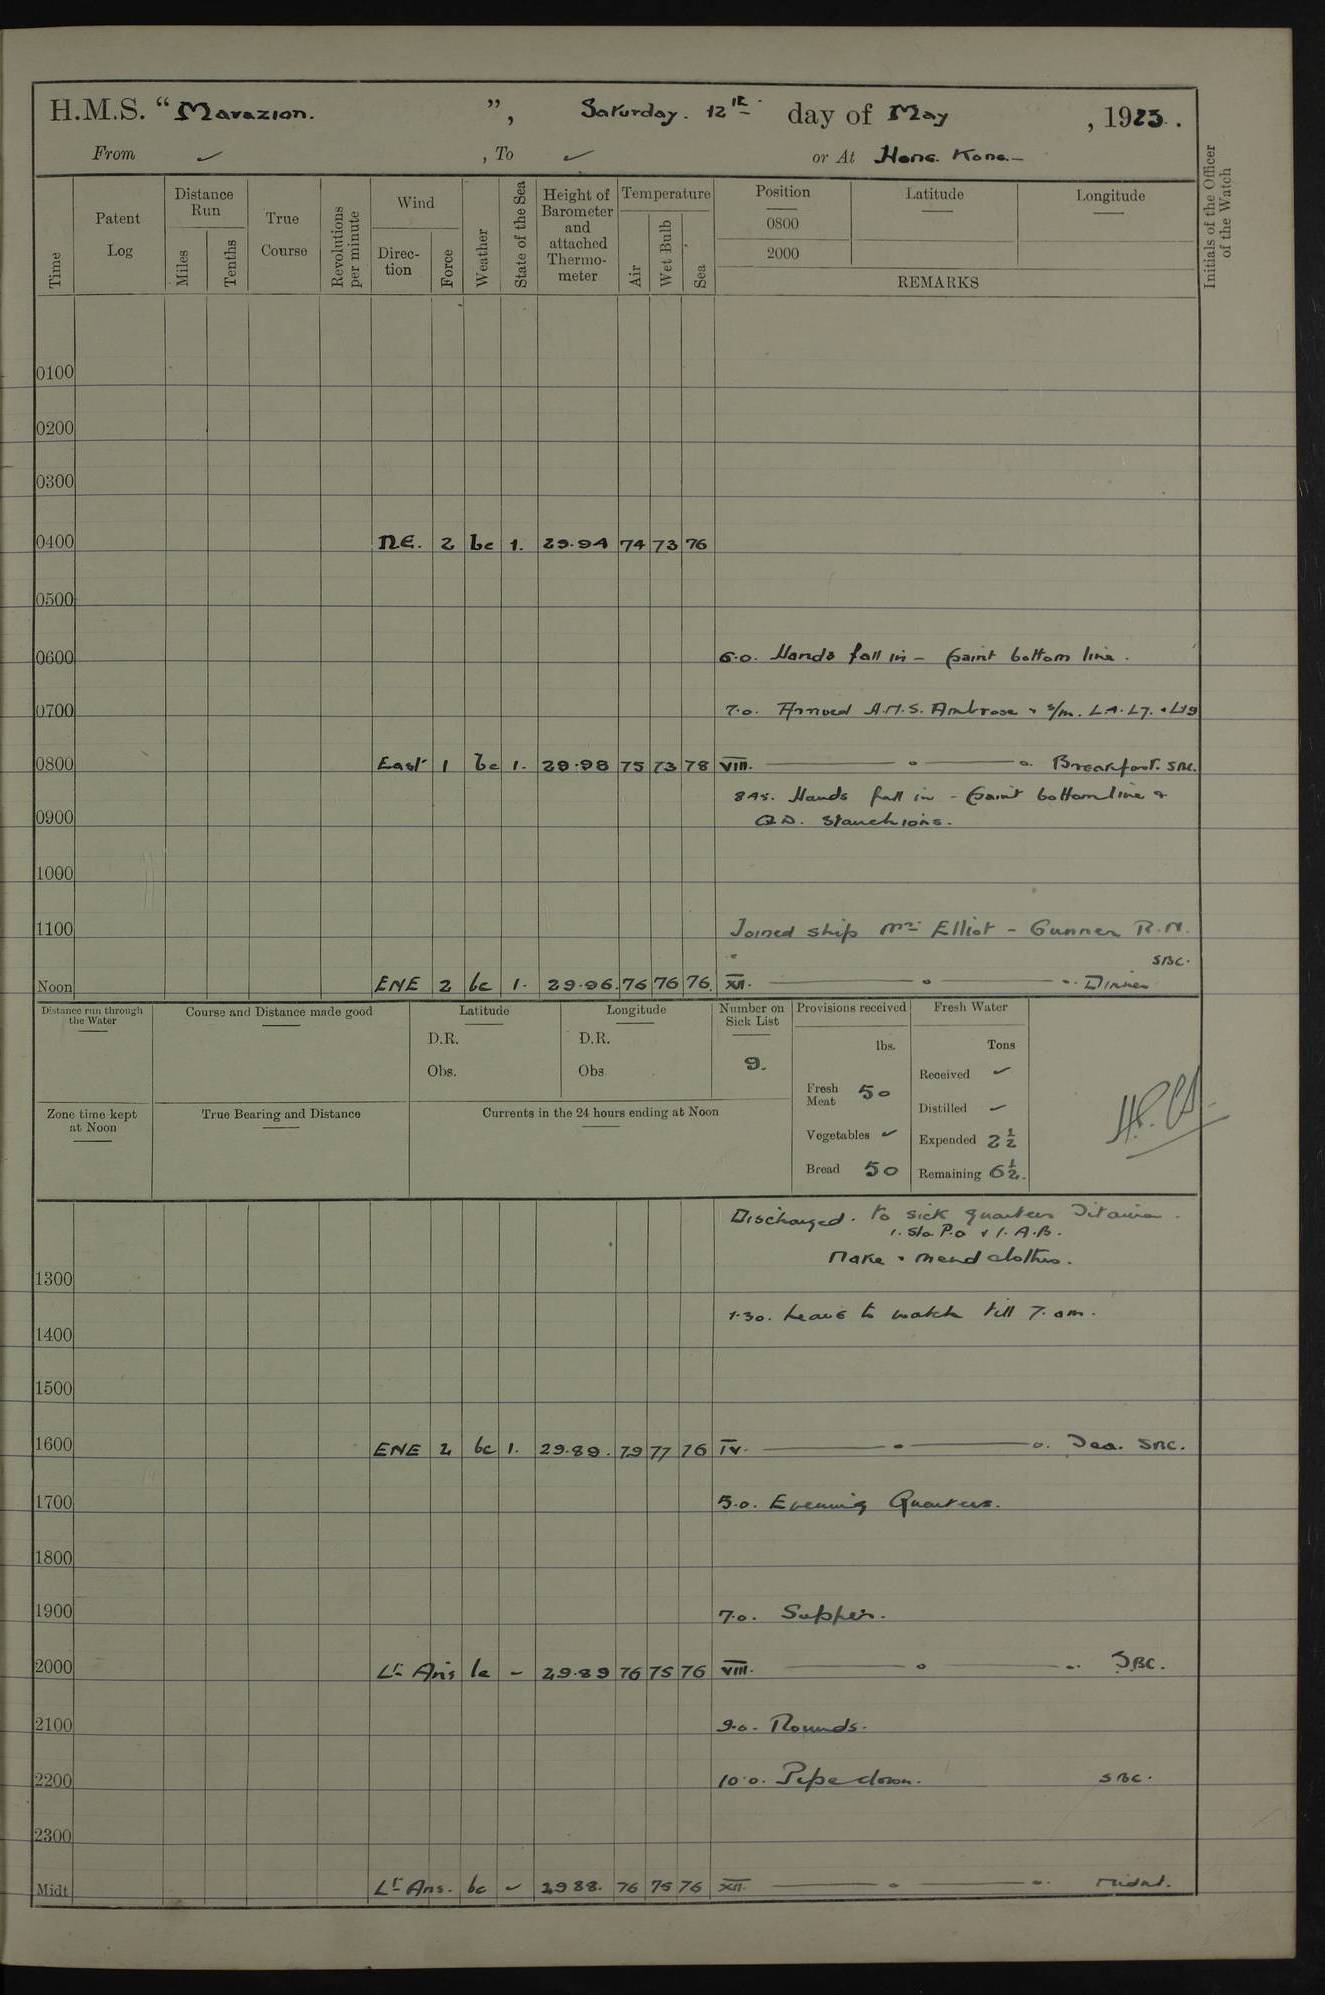 H.M.S. “Marazion.”, Saturday. 12th day of May, 1923.
From ✓, To ✓ or At Hong Kong.
Time
Patent Log
Distance Run
Miles
Tenths
True Course
Revolutions per minute
Wind
Direction
Force
Weather
State of the Sea
Height of Barometer and attached Thermometer
Temperature
Air
Wet Bulb
Sea
Position
Latitude
Longitude
0800
2000
REMARKS
Initials of the Officer of the Watch
0100
0200
0300
0400 NE. 2 bc 1. 29.94 74 73 76
0500
0600 6.0. Hands fall in – paint bottom line.
0700 7.0. Arrived H.M.S. Ambrose & s/m. L4. L7. & L19
0800 East 1 bc 1. 29.98 75 73 78 VIII. Breakfast. SBC.
8.45. Hands fall in – paint bottom line &
0900 QD. stanchions.
1000
1100 Joined ship Mr Elliot – Gunner R.N.
SBC.
Noon ENE 2 bc 1. 29.96. 76 76 76. XII. Dinner
Distance run through the Water
Course and Distance made good
Latitude
D.R.
Obs.
Longitude
D.R.
Obs
Number on Sick List
9.
Provisions received
lbs.
Fresh Meat 50
Vegetables ✓
Bread 50
Fresh Water
Tons
Received ✓
Distilled ✓
Expended 2½
Remaining 6½.
Zone time kept at Noon
True Bearing and Distance
Currents in the 24 hours ending at Noon
Discharged. to sick quarters
1. Sto P.O & 1. A.B.
Make & mend clothes.
1300
1.30. Leave to watch till 7. am.
1400
1500
1600 ENE 2 bc 1. 29.89. 79 77 76 IV. Tea. SBC.
1700 5.0. Evening Quarters.
1800
1900 7.0. Supper.
2000 Lt Airs bc – 29.89 76 75 76 VIII. SBC.
2100 9.0. Rounds.
2200 10.0. Pipe down. SBC.
2300
Midt Lt Airs. bc ✓ 29 88. 76 75 76 XII. Midnt.